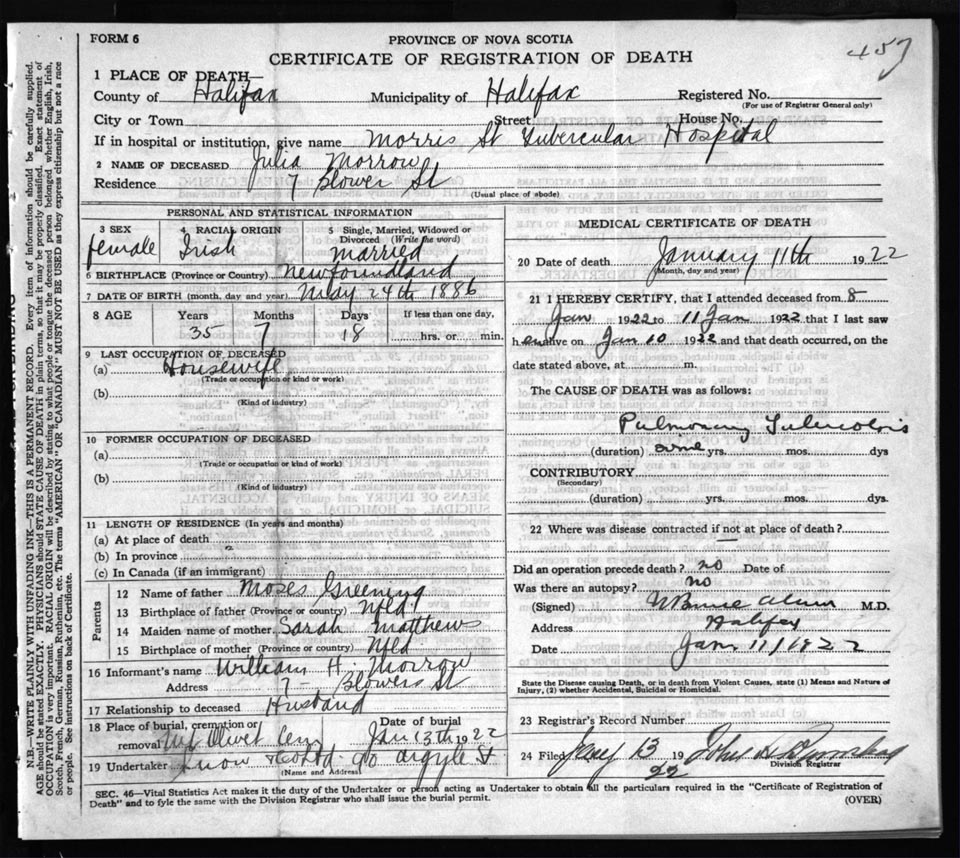 FORM 6
PROVINCE OF NOVA SCOTIA
457
CERTIFICATE OF REGISTRATION OF DEATH
1 PLACE OF DEATH—
County of Halifax Municipality of Halifax Registered No.
(For use of Registrar General only)
City or Town Street House No.
If in hospital or institution, give name Morris St Tubercular Hospital
2 NAME OF DECEASED Julia Morrow
Residence 7 Blower St
(Usual place of abode)
PERSONAL AND STATISTICAL INFORMATION
3 SEX 4 RACIAL ORIGIN 5 Single, Married, Widowed or Divorced (Write the word)
female Irish married
6 BIRTHPLACE (Province or Country) Newfoundland
7 DATE OF BIRTH (month, day and year) May 24th 1886
8 AGE Years Months Days If less than one day,
35 7 18 hrs. or min.
9 LAST OCCUPATION OF DECEASED
(a) Housewife
(Trade or occupation or kind or work)
(b)
(Kind of industry)
10 FORMER OCCUPATION OF DECEASED
(a)
(Trade or occupation or kind of work)
(b)
(Kind of industry)
11 LENGTH OF RESIDENCE (In years and months)
(a) At place of death
(b) In province
(c) In Canada (if an immigrant)
Parents
12 Name of father Moses Greening
13 Birthplace of father (Province or country) Nfld
14 Maiden name of mother Sarah Matthews
15 Birthplace of mother (Province or country) Nfld
16 Informant's name William H. Morrow
Address 7 - Blowers St
17 Relationship to deceased Husband
18 Place of burial, cremation or removal Mt Olivet Cem Date of burial Jan 13th 1922
19 Undertaker Snow & Co Ltd 90 Argyle St
(Name and Address)
MEDICAL CERTIFICATE OF DEATH
20 Date of death January 11th 1922
(Month, day and year)
21 I HEREBY CERTIFY, that I attended deceased from 8
Jan 1922 to 11 Jan 1922 that I last saw
her alive on Jan 10 1922 and that death occurred, on the
date stated above, at m.
The CAUSE OF DEATH was as follows:
Pulmonary Tuberculosis
(duration) yrs. mos. dys
CONTRIBUTORY
(Secondary)
(duration) yrs. mos. dys.
22 Where was disease contracted if not at place of death?
—
Did an operation precede death? no Date of
Was there an autopsy? no
(Signed) M.D.
Address Halifax
Date Jan 11/1922
State the Disease causing Death, or in death from Violent Causes, state (1) Means and Nature of
Injury, (2) whether Accidental, Suicidal or Homicidal.
23 Registrar's Record Number
24 Filed Jany 13 19 22 John
Division Registrar
SEC. 46—Vital Statistics Act makes it the duty of the Undertaker or person acting as Undertaker to obtain all the particulars required in the "Certificate of Registration of
Death" and to fyle the same with the Division Registrar who shall issue the burial permit.
(OVER)
N.B.—WRITE PLAINLY WITH UNFADING INK—THIS IS A PERMANENT RECORD. Every item of information should be carefully supplied.
AGE should be stated EXACTLY. PHYSICIANS should STATE CAUSE OF DEATH in plain terms, so that it may be properly classified. Exact statement of
OCCUPATION is very important. RACIAL ORIGIN will be described by stating to what people or tongue the deceased person belonged whether English, Irish,
Scotch, French, German, Russian, Ruthenian, etc. The terms "AMERICAN" OR "CANADIAN" MUST NOT BE USED as they express citizenship but not a race
or people. See instructions on back of Certificate.